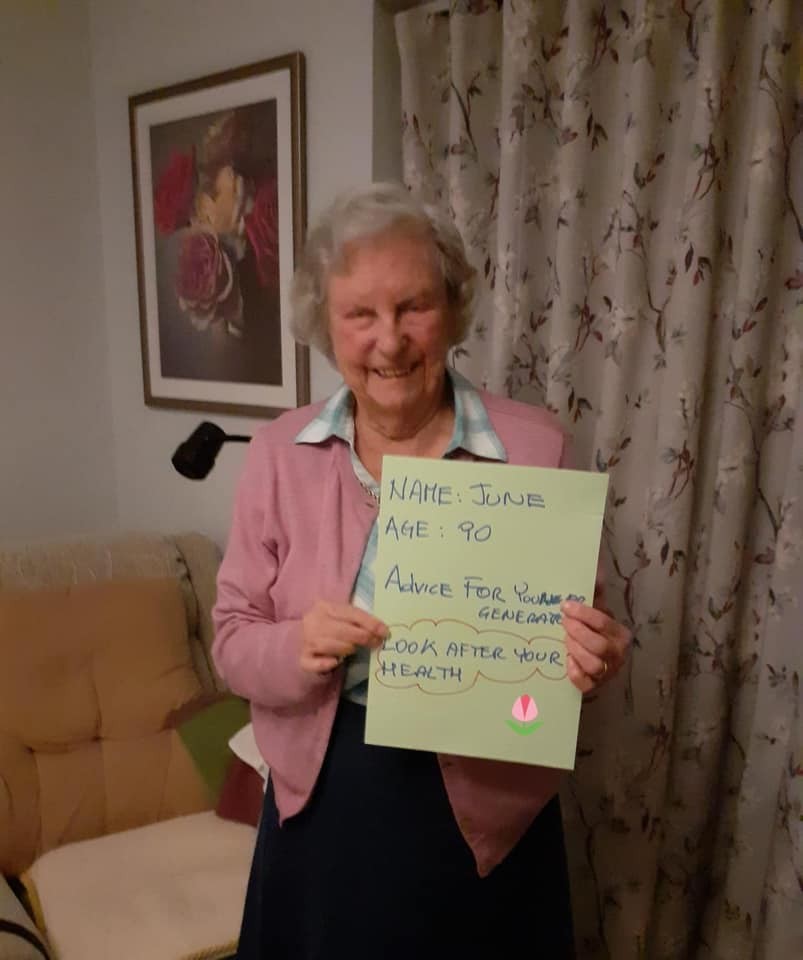 NAME: JUNE
AGE: 90
ADVICE FOR
GENERAT
LOOK AFTER YOUR
HEALTH